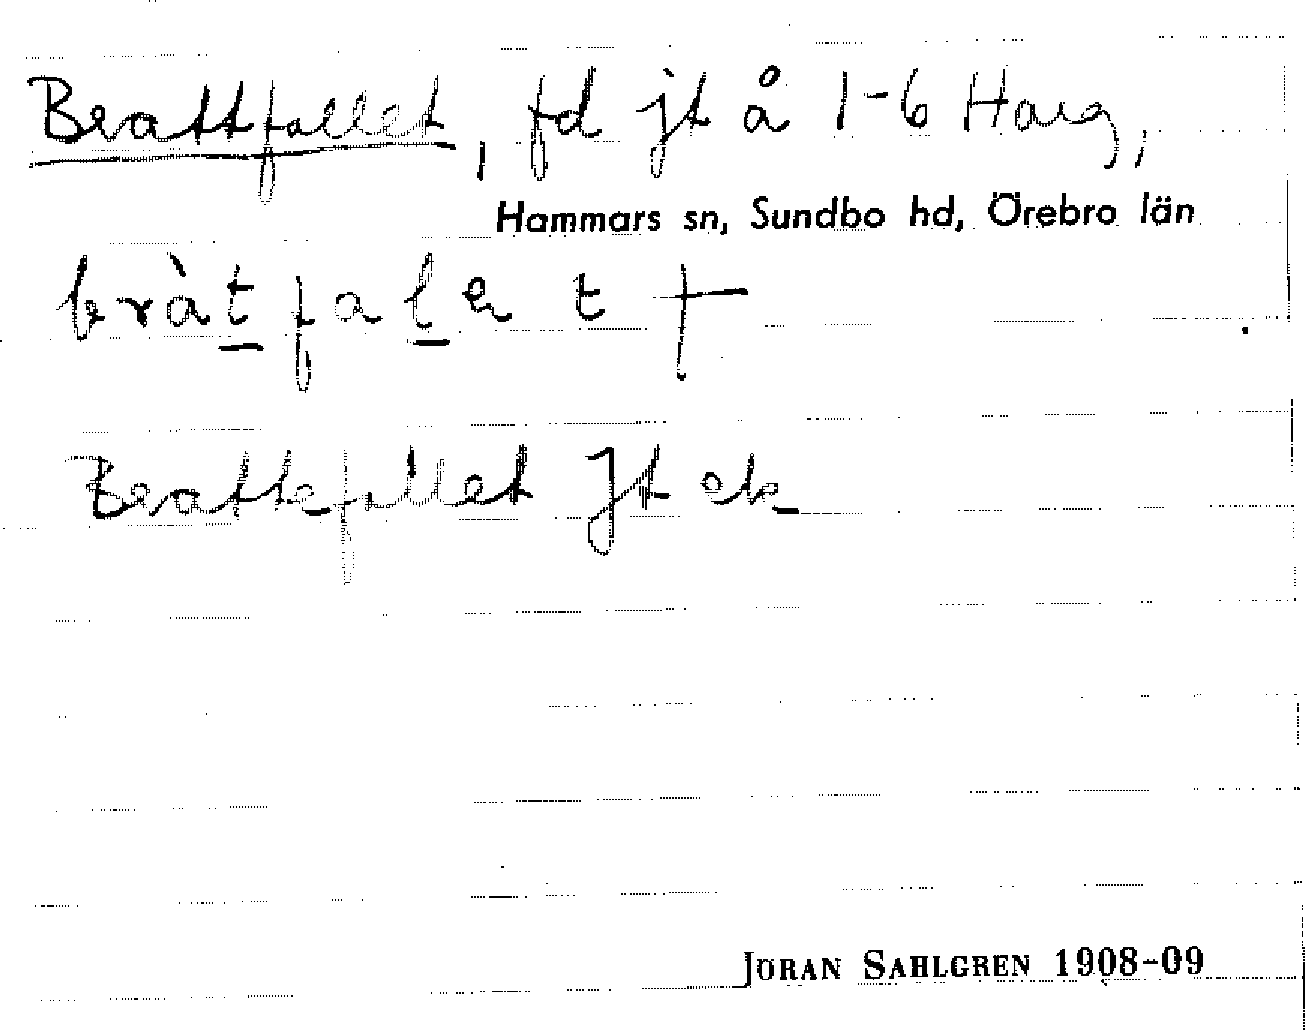 Brattfallet, fd jt å 1-6 Harg,
Hammars sn, Sundbo hd, Örebro län
bràtfalet +
Brattefallet Jt ek
JÖRAN SAHLGREN 1908-09